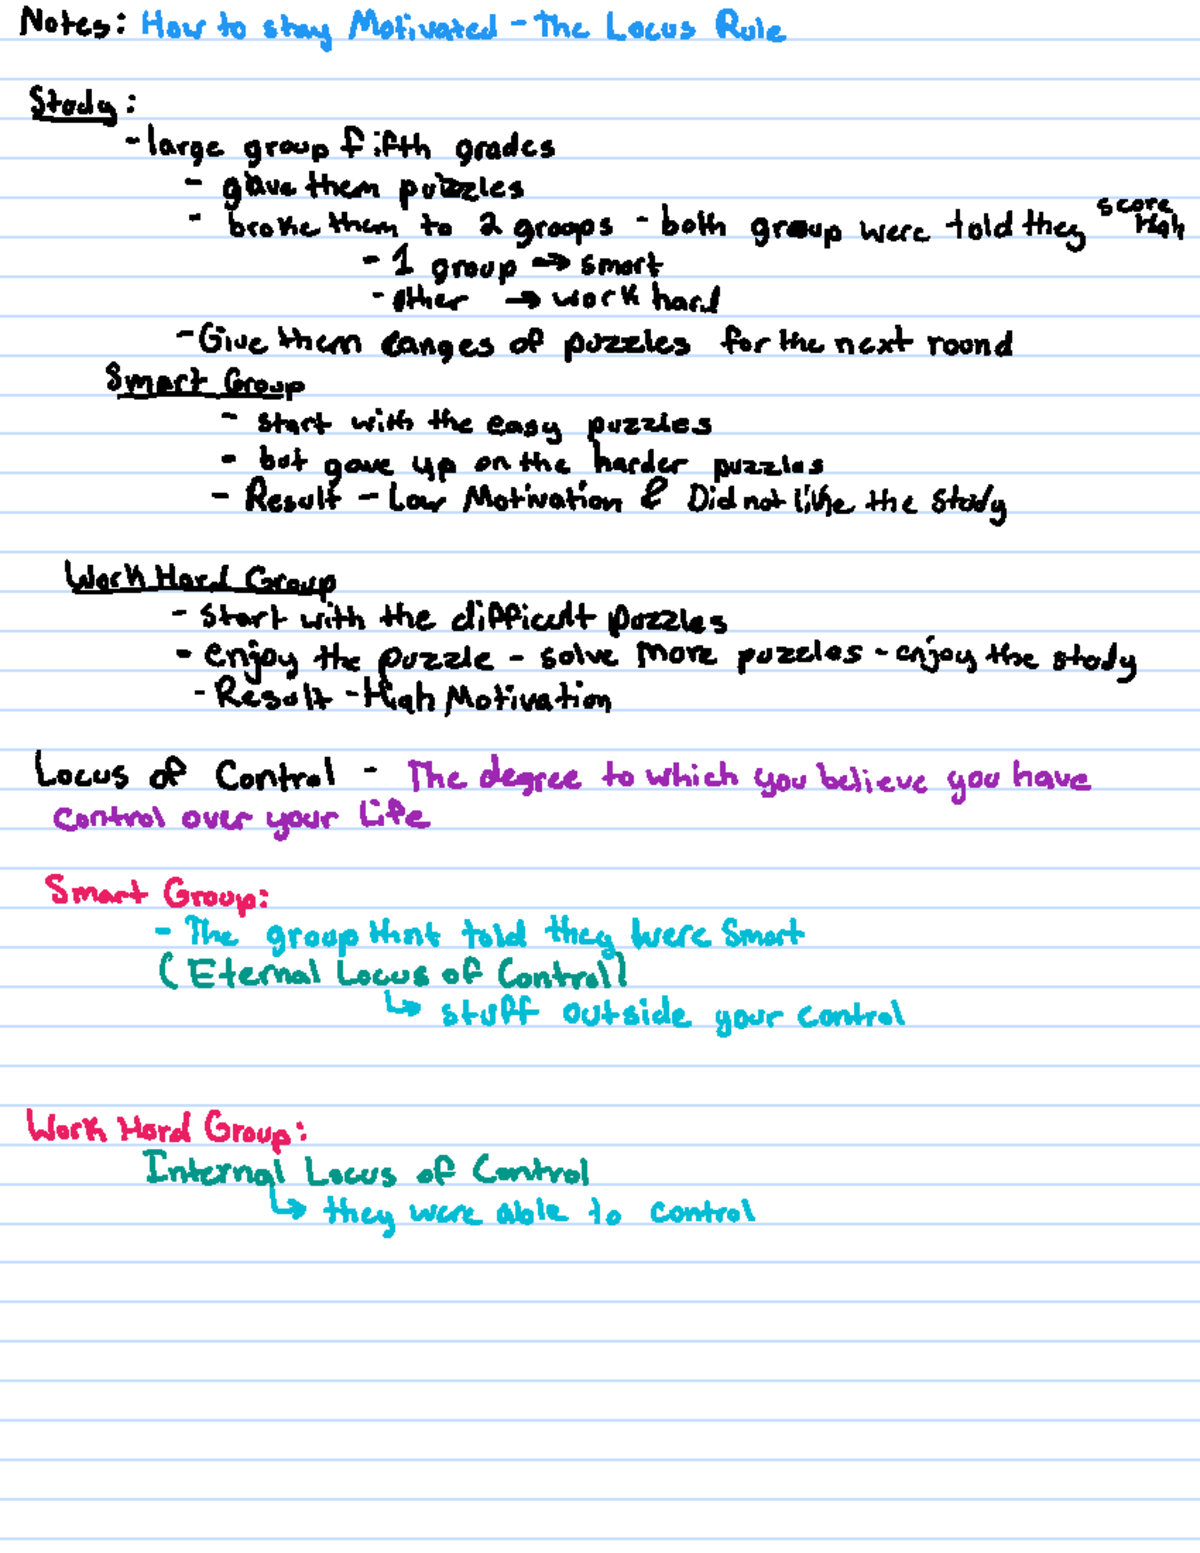 Notes: How to stay Motivated - The Locus Rule
Study:
- large group fifth grades
- gave them puzzles
- broke them to 2 groups - both group were told they score high
- 1 group → smart
- other → work hard
- Give them ranges of puzzles for the next round
Smart Group
- start with the easy puzzles
- but gave up on the harder puzzles
- Result - Low Motivation & Did not like the study
Work Hard Group
- start with the difficult puzzles
- enjoy the puzzle - solve more puzzles - enjoy the study
- Result - High Motivation
Locus of Control - The degree to which you believe you have
control over your life
Smart Group:
- The group that told they were smart
(Eternal Locus of Control)
↳ stuff outside your control
Work Hard Group:
Internal Locus of Control
↳ they were able to control